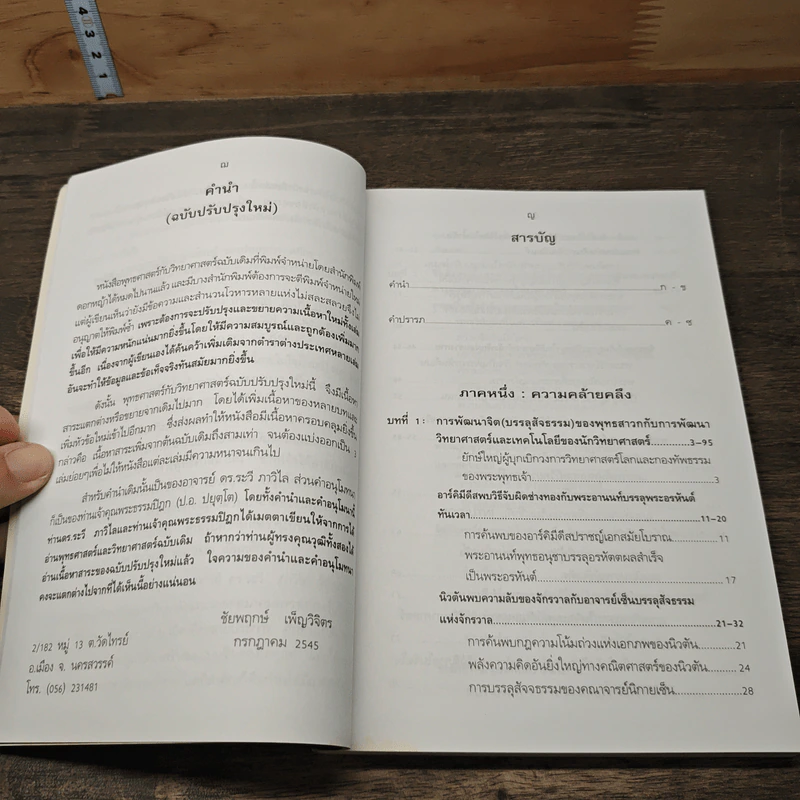 4 3 2 1
ฌ
คำนำ
(ฉบับปรับปรุงใหม่)
หนังสือพุทธศาสตร์กับวิทยาศาสตร์ฉบับเดิมที่พิมพ์จำหน่ายโดยสำนักพิมพ์
ดอกหญ้าได้หมดไปนานแล้ว และมีบางสำนักพิมพ์ต้องการจะตีพิมพ์จำหน่ายใหม่
แต่ผู้เขียนเห็นว่ายังมีข้อความและสำนวนโวหารหลายแห่งไม่สละสลวยจึงไม่
อนุญาตให้พิมพ์ซ้ำ เพราะต้องการจะปรับปรุงและขยายความเนื้อหาใหม่ทั้งเล่ม
เพื่อให้มีความหนักแน่นมากยิ่งขึ้นโดยให้มีความสมบูรณ์และถูกต้องเพิ่มมาก
ขึ้นอีก เนื่องจากผู้เขียนเองได้ค้นคว้าเพิ่มเติมจากตำราต่างประเทศหลายเล่ม
อันจะทำให้ข้อมูลและข้อเท็จจริงทันสมัยมากยิ่งขึ้น
ดังนั้น พุทธศาสตร์กับวิทยาศาสตร์ฉบับปรับปรุงใหม่นี้ จึงมีเนื้อหา
สาระแตกต่างหรือขยายจากเดิมไปมาก โดยได้เพิ่มเนื้อหาของหลายบทและ
เพิ่มหัวข้อใหม่เข้าไปอีกมาก ซึ่งส่งผลทำให้หนังสือมีเนื้อหาครอบคลุมยิ่งขึ้น
กล่าวคือ เนื้อหาสาระเพิ่มจากต้นฉบับเดิมถึงสามเท่า จนต้องแบ่งออกเป็น 3
เล่มย่อยๆเพื่อไม่ให้หนังสือแต่ละเล่มมีความหนาจนเกินไป
สำหรับคำนำเดิมนั้นเป็นของอาจารย์ ดร.ระวี ภาวิไล ส่วนคำอนุโมทนา
ก็เป็นของท่านเจ้าคุณพระธรรมปิฎก (ป.อ. ปยุตฺโต) โดยทั้งคำนำและคำอนุโมทนานี้
ท่านดร.ระวี ภาวิไลและท่านเจ้าคุณพระธรรมปิฎกได้เมตตาเขียนให้จากการได้
อ่านพุทธศาสตร์และวิทยาศาสตร์ฉบับเดิม ถ้าหากว่าท่านผู้ทรงคุณวุฒิทั้งสองได้
อ่านเนื้อหาสาระของฉบับปรับปรุงใหม่แล้ว ใจความของคำนำและคำอนุโมทนา
คงจะแตกต่างไปจากที่ได้เห็นนี้อย่างแน่นอน
ชัยพฤกษ์ เพ็ญวิจิตร
กรกฎาคม 2545
2/182 หมู่ 13 ต.วัดไทรย์
อ.เมือง จ. นครสวรรค์
โทร. (056) 231481
ญ
สารบัญ
คำนำ ก - ช
คำปรารภ ค - ซ
ภาคหนึ่ง : ความคล้ายคลึง
บทที่ 1 : การพัฒนาจิต(บรรลุสัจธรรม)ของพุทธสาวกกับการพัฒนา
วิทยาศาสตร์และเทคโนโลยีของนักวิทยาศาสตร์..........3-95
ยักษ์ใหญ่ผู้บุกเบิกวงการวิทยาศาสตร์โลกและกองทัพธรรม
ของพระพุทธเจ้า..........3
อาร์คิมีดีสพบวิธีจับผิดช่างทองกับพระอานนท์บรรลุพระอรหันต์
ทันเวลา..........11-20
การค้นพบของอาร์คิมีดีสปราชญ์เอกสมัยโบราณ..........11
พระอานนท์พุทธอนุชาบรรลุอรหัตตผลสำเร็จ
เป็นพระอรหันต์..........17
นิวตันพบความลับของจักรวาลกับอาจารย์เซ็นบรรลุสัจธรรม
แห่งจักรวาล..........21-32
การค้นพบกฎความโน้มถ่วงแห่งเอกภพของนิวตัน..........21
พลังความคิดอันยิ่งใหญ่ทางคณิตศาสตร์ของนิวตัน..........24
การบรรลุสัจจธรรมของคณาจารย์นิกายเซ็น..........28